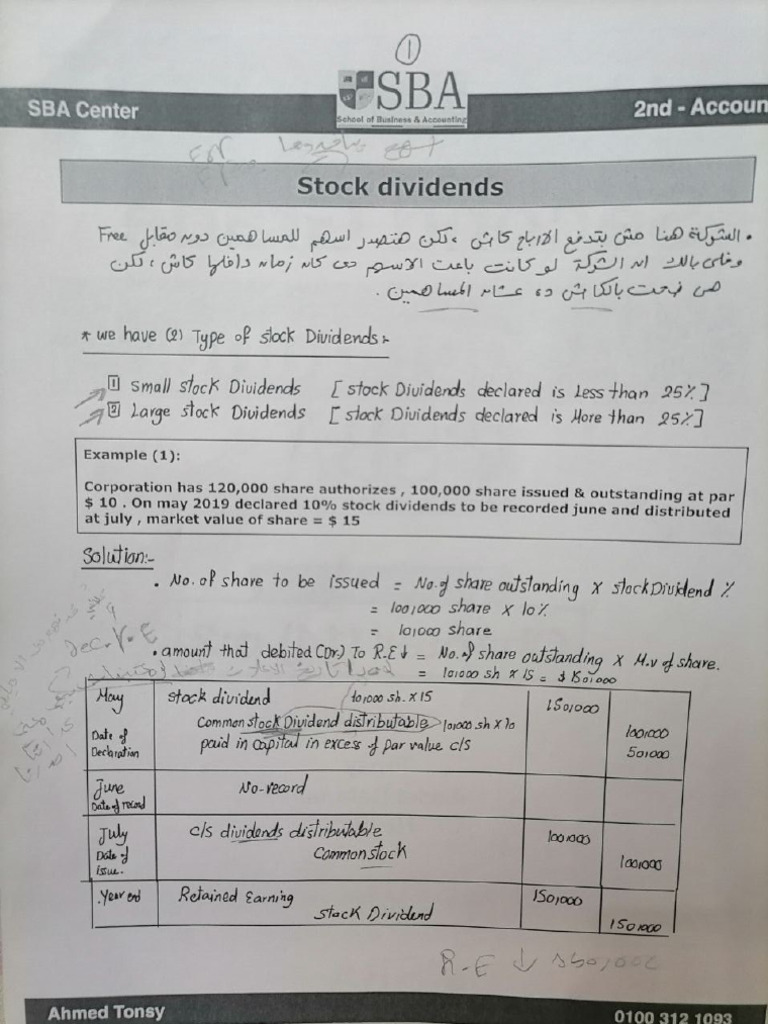 1
SBA
School of Business & Accounting
SBA Center
2nd - Accoun
Stock dividends
• الشركة هنا مش بتدفع الارباح كاش ، لكن هتصدر اسهم للمساهمين دون مقابل Free
وخلى بالك ان الشركة لو كانت باعت الاسهم دى كان زمانه داخلها كاش ، لكن
هى ضحت بالكاش ده عشان المساهمين .
* we have (2) Type of stock Dividends:-
1 Small stock Dividends [ stock Dividends declared is Less than 25% ]
2 Large stock Dividends [ stock Dividends declared is More than 25% ]
Example (1):
Corporation has 120,000 share authorizes , 100,000 share issued & outstanding at par
$ 10 . On may 2019 declared 10% stock dividends to be recorded june and distributed
at july , market value of share = $ 15
Solution:-
• No. of share to be issued = No. of share outstanding X stock Dividend %
= 100,000 share X 10%
= 10,000 share
• amount that debited (Dr.) To R.E ↓ = No. of share outstanding X M.v of share.
= 10,000 sh X 15 = $ 150,000
May stock dividend 10,000 sh. X 15 150,000
Common stock Dividend distributable 10,000 sh X 10 100,000
Date of Declaration paid in capital in excess of par value c/s 50,000
June No-record
Date of record
July c/s dividends distributable 100,000
Date of issue. Common stock 100,000
.Year end Retained Earning 150,000
stock Dividend 150,000
R.E ↓
Ahmed Tonsy
0100 312 1093